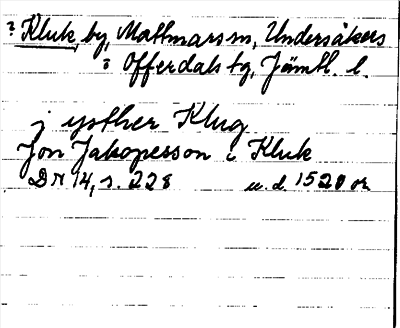 ? Kluk, by, Mattmars sn, Undersåkers
? Offerdals tg, Jämtl. l.
j ysther Klug
Jon Jakopersson i Kluk
DN 14, s. 228 u. d. 1520